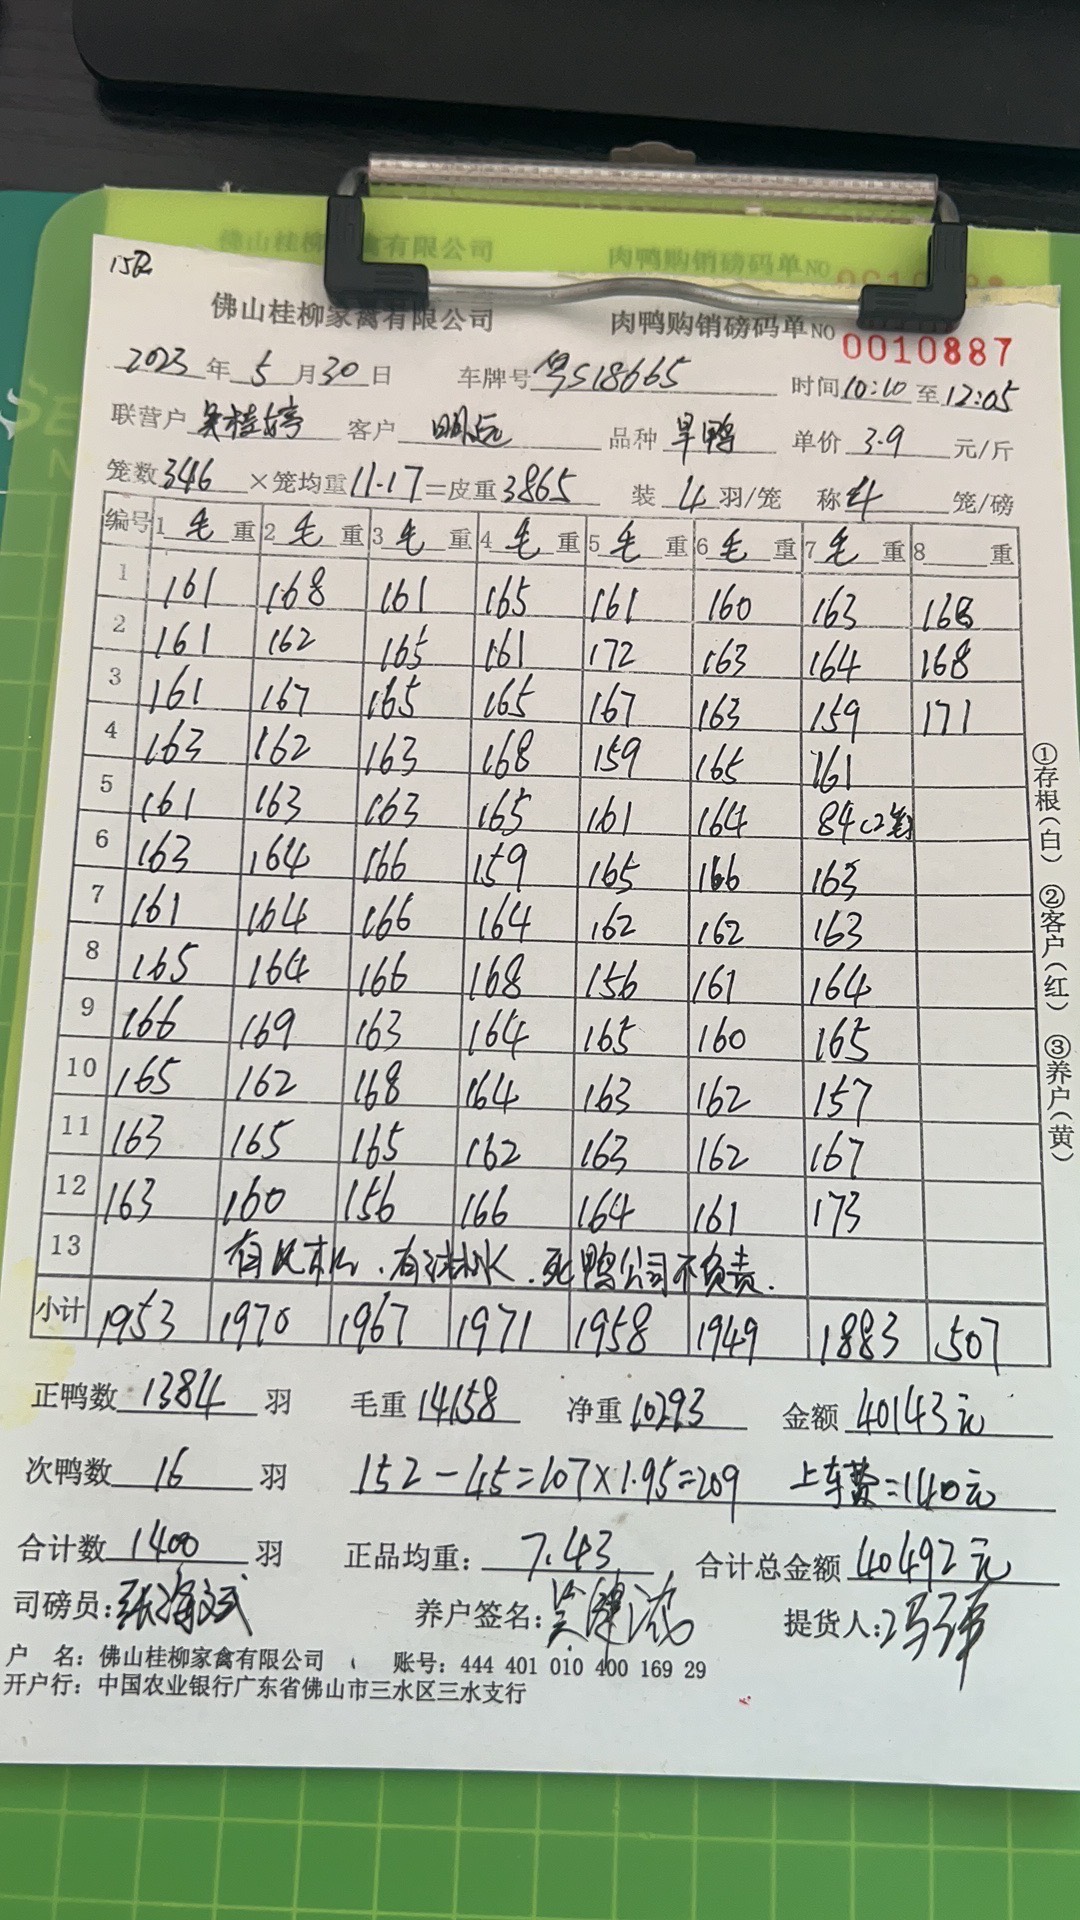 佛山桂柳家禽有限公司 肉鸭购销磅码单NO
佛山桂柳家禽有限公司 肉鸭购销磅码单NO 0010887
2023年5月30日 车牌号粤S18665 时间10:10至12:05
联营户吴桂婷 客户明远 品种旱鸭 单价3.9元/斤
笼数346×笼均重11.17=皮重3865 装4羽/笼 称4笼/磅
编号 1毛重 2毛重 3毛重 4毛重 5毛重 6毛重 7毛重 8重
1 161 168 161 165 161 160 163 168
2 161 162 165 161 172 163 164 168
3 161 167 165 165 167 163 159 171
4 163 162 163 168 159 165 161
5 161 163 163 165 161 164 84(2笼)
6 163 164 166 159 165 166 163
7 161 164 166 164 162 162 163
8 165 164 166 168 156 161 164
9 166 169 163 164 165 160 165
10 165 162 168 164 163 162 157
11 163 165 165 162 163 162 167
12 163 160 156 166 164 161 173
13 有风机、有淋水、死鸭公司不负责.
小计 1953 1970 1967 1971 1958 1949 1883 507
①存根(白) ②客户(红) ③养户(黄)
正鸭数1384羽 毛重14158 净重10293 金额40143元
次鸭数16羽 152-45=107×1.95=209 上车费=140元
合计数1400羽 正品均重:7.43 合计总金额40492元
司磅员:张海斌 养户签名: 提货人:冯
户 名:佛山桂柳家禽有限公司 账号:444 401 010 400 169 29
开户行:中国农业银行广东省佛山市三水区三水支行